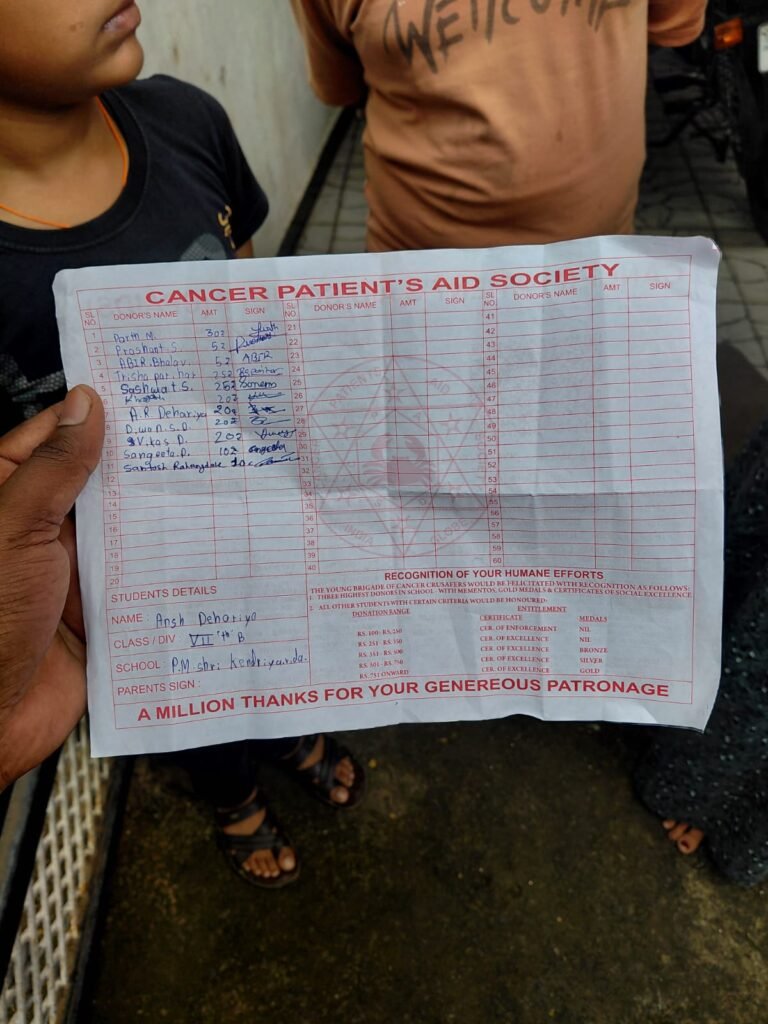 WELCOME
CANCER PATIENT'S AID SOCIETY
SL NO. DONOR'S NAME AMT SIGN SL NO. DONOR'S NAME AMT SIGN SL NO. DONOR'S NAME AMT SIGN
1 Parth M. 302 21 41
2 Prashant S. 52 22 42
3 ABIR.Bhalav. 52 ABIR 23 43
4 Trisha par har 252 24 44
5 Sashwat S. 252 25 45
6 202 26 46
7 A.R Dehariya 202 27 47
8 D.wan.S.D. 202 28 48
9 V.kas D. 202 29 49
10 Sangeeta.D. 102 30 50
11 Santosh Rahangdale 31 51
12 32 52
13 33 53
14 34 54
15 35 55
16 36 56
17 37 57
18 38 58
19 39 59
20 40 60
PATIENTS AID
INDIA GLOBE
STUDENTS DETAILS
NAME : Ansh Dehariya
CLASS / DIV : VII'th B
SCHOOL : P.M shri Kendriya.v.da.
PARENTS SIGN :
RECOGNITION OF YOUR HUMANE EFFORTS
THE YOUNG BRIGADE OF CANCER CRUSAFERS WOULD BE FELICITATED WITH RECOGNITION AS FOLLOWS:
1. THREE HIGHEST DONORS IN SCHOOL - WITH MEMENTOS, GOLD MEDALS & CERTIFICATES OF SOCIAL EXCELLENCE
2. ALL OTHER STUDENTS WITH CERTAIN CRITERIA WOULD BE HONOURED:
DONATION RANGE ENTITLEMENT
CERTIFICATE MEDALS
RS. 100- RS.250 CER. OF ENFORCEMENT NIL
RS. 251 - RS. 350 CER. OF EXCELLENCE NIL
RS. 351 - RS. 500 CER. OF EXCELLENCE BRONZE
RS. 501 - RS. 750 CER. OF EXCELLENCE SILVER
RS. 751 ONWARD CER. OF EXCELLENCE GOLD
A MILLION THANKS FOR YOUR GENEREOUS PATRONAGE